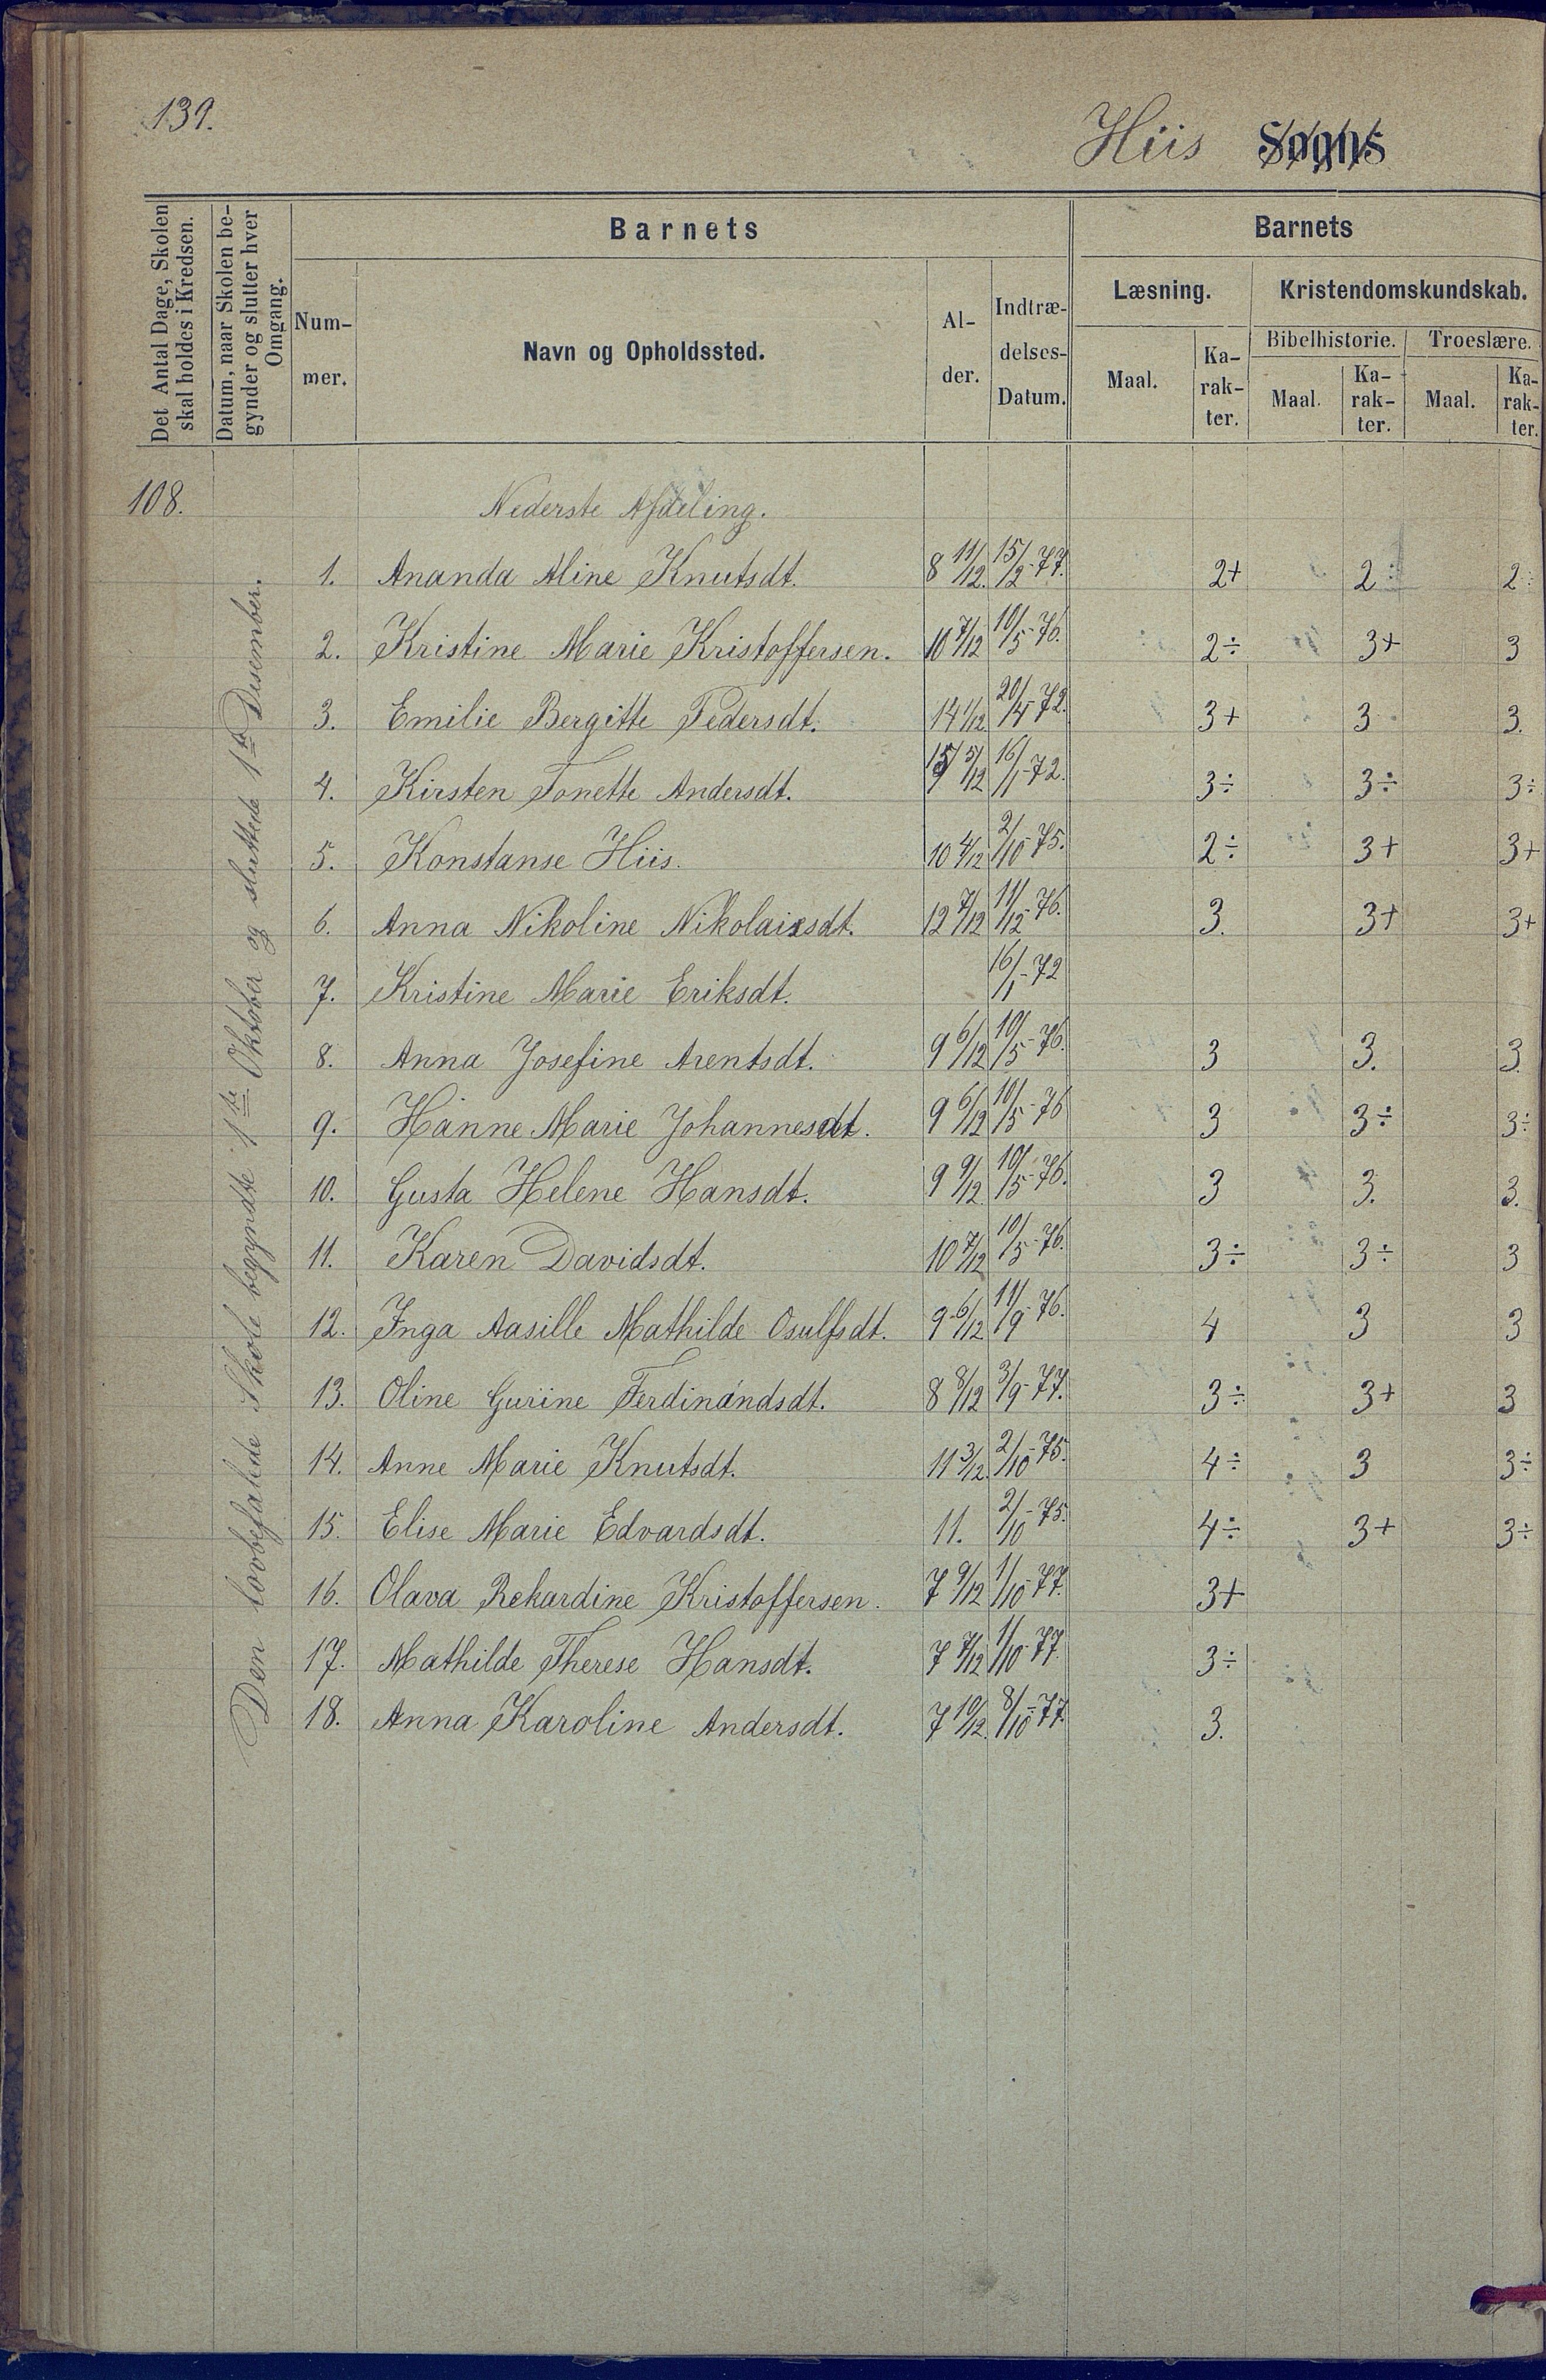 139.
Hiis Sogns
Det Antal Dage, Skolen skal holdes i Kredsen.
Datum, naar Skolen begynder og slutter hver Omgang.
Barnets
Barnets
Nummer.
Navn og Opholdssted.
Alder.
Indtrædelses-Datum.
Læsning.
Kristendomskundskab.
Maal.
Karakter.
Bibelhistorie.
Troeslære.
Maal.
Karakter.
Maal.
Karakter.
108.
Den lovbefalede Skole begyndte 1ste Oktober og sluttede 1ste Desember.
Nederste Afdeling.
1. Ananda Aline Knutsdt. 8 11/12. 15/2-77. 2+ 2÷ 2÷
2. Kristine Marie Kristoffersen. 10 7/12 10/5-76. 2÷ 3+ 3
3. Emilie Bergitte Pedersdt. 14 1/12. 20/4-72. 3+ 3 3.
4. Kirsten Tonette Andersdt. 15 5/12 16/1-72. 3÷ 3÷ 3÷
5. Konstanse Hiis. 10 4/12 2/10-75. 2÷ 3+ 3+
6. Anna Nikoline Nikolaisdt. 12 7/12 11/12-76. 3. 3+ 3+
7. Kristine Marie Eriksdt. 16/1-72
8. Anna Josefine Arentsdt. 9 6/12 10/5-76. 3 3. 3.
9. Hanne Marie Johannesdt. 9 6/12 10/5-76 3 3÷ 3÷
10. Gusta Helene Hansdt. 9 9/12 10/5-76. 3 3. 3.
11. Karen Davidsdt. 10 7/12 10/5-76. 3÷ 3÷ 3
12. Inga Aasille Mathilde Osulfsdt. 9 6/12 11/9-76. 4 3 3
13. Oline Gurine Ferdinandsdt. 8 8/12 3/9-77. 3÷ 3+ 3
14. Anne Marie Knutsdt. 11 3/12. 2/10-75. 4÷ 3 3÷
15. Elise Marie Edvardsdt. 11. 2/10-75. 4÷ 3+ 3÷
16. Olava Rekardine Kristoffersen. 7 9/12 1/10-77. 3+
17. Mathilde Therese Hansdt. 7 7/12 1/10-77. 3÷
18. Anna Karoline Andersdt. 7 10/12. 8/10-77. 3.